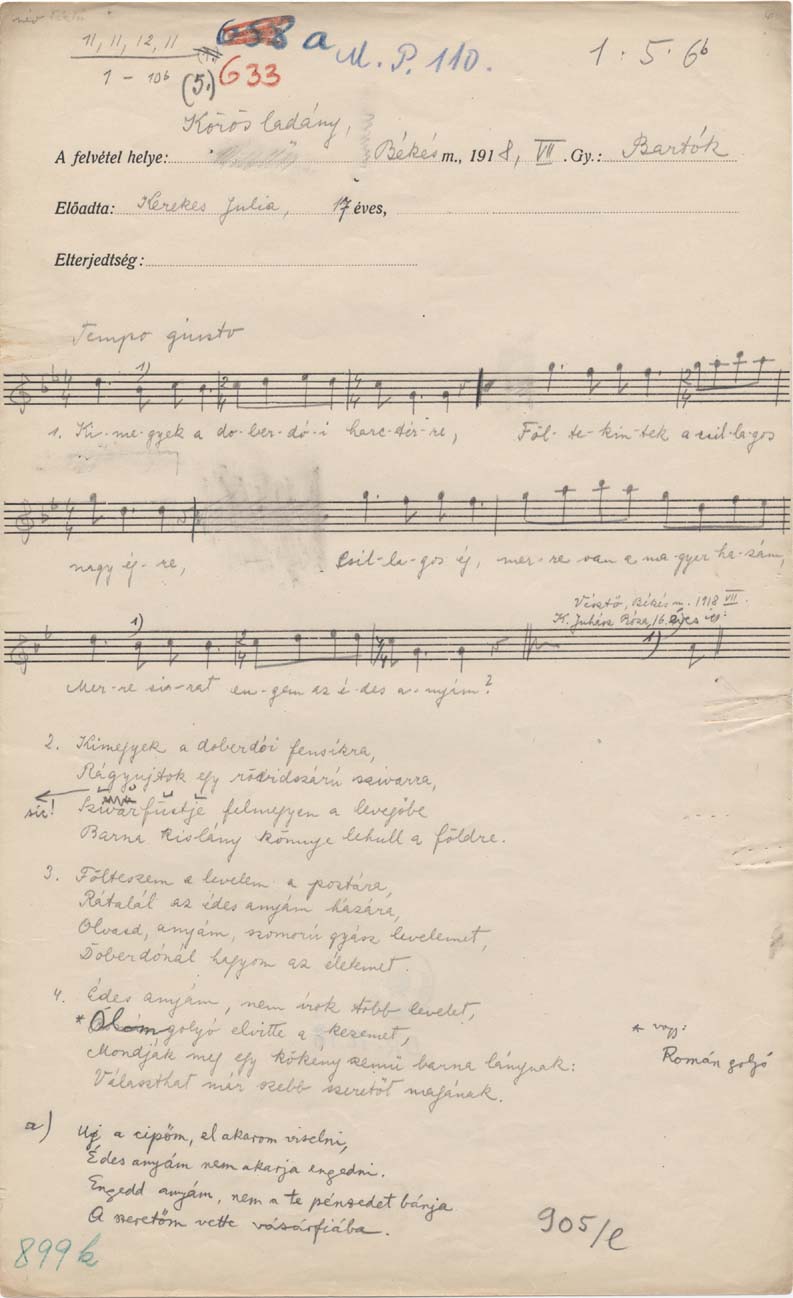 név
11, 11, 12, 11
658 a
M. P. 110.
1 . 5 . 6b
1 – 10b
(5.) 633
Körösladány,
A felvétel helye: Békés m., 1918, VII . Gy.: Bartók
Előadta: Kerekes Julia, 17 éves,
Elterjedtség:
Tempo giusto
1)
1. Ki-me-gyek a do-ber-dó-i harc-tér-re, Föl-te-kin-tek a csil-la-gos
nagy ég-re, Csil-la-gos ég, mer-re van a ma-gyar ha-zám,
Vésztő, Békés m. 1918 VII.
K. Juhász Róza, 16 éves
1) 1)
Mer-re si-rat en-gem az é-des a-nyám?
2. Kimegyek a doberdói fensíkra,
Rágyujtok egy rövidszárú szivarra,
sic! Szivarfüstje felmegyen a levegőbe
Barna kislány könnye lehull a földre.
3. Fölteszem a levelem a postára,
Rátalál az édes anyám házára,
Olvasd, anyám, szomorú gyász levelemet,
Doberdónál hagyom az életemet.
4. Édes anyám, nem írok több levelet,
* Ólomgolyó elvitte a kezemet,
* vagy:
Román golyó
Mondják meg egy kökény szemü barna lánynak:
Választhat már szebb szeretőt magának.
a) Uj a cipőm, el akarom viselni,
Édes anyám nem akarja engedni.
Engedd anyám, nem a te pénzedet bánja
A szeretőm vette vásárfiába.
905/e
899 k